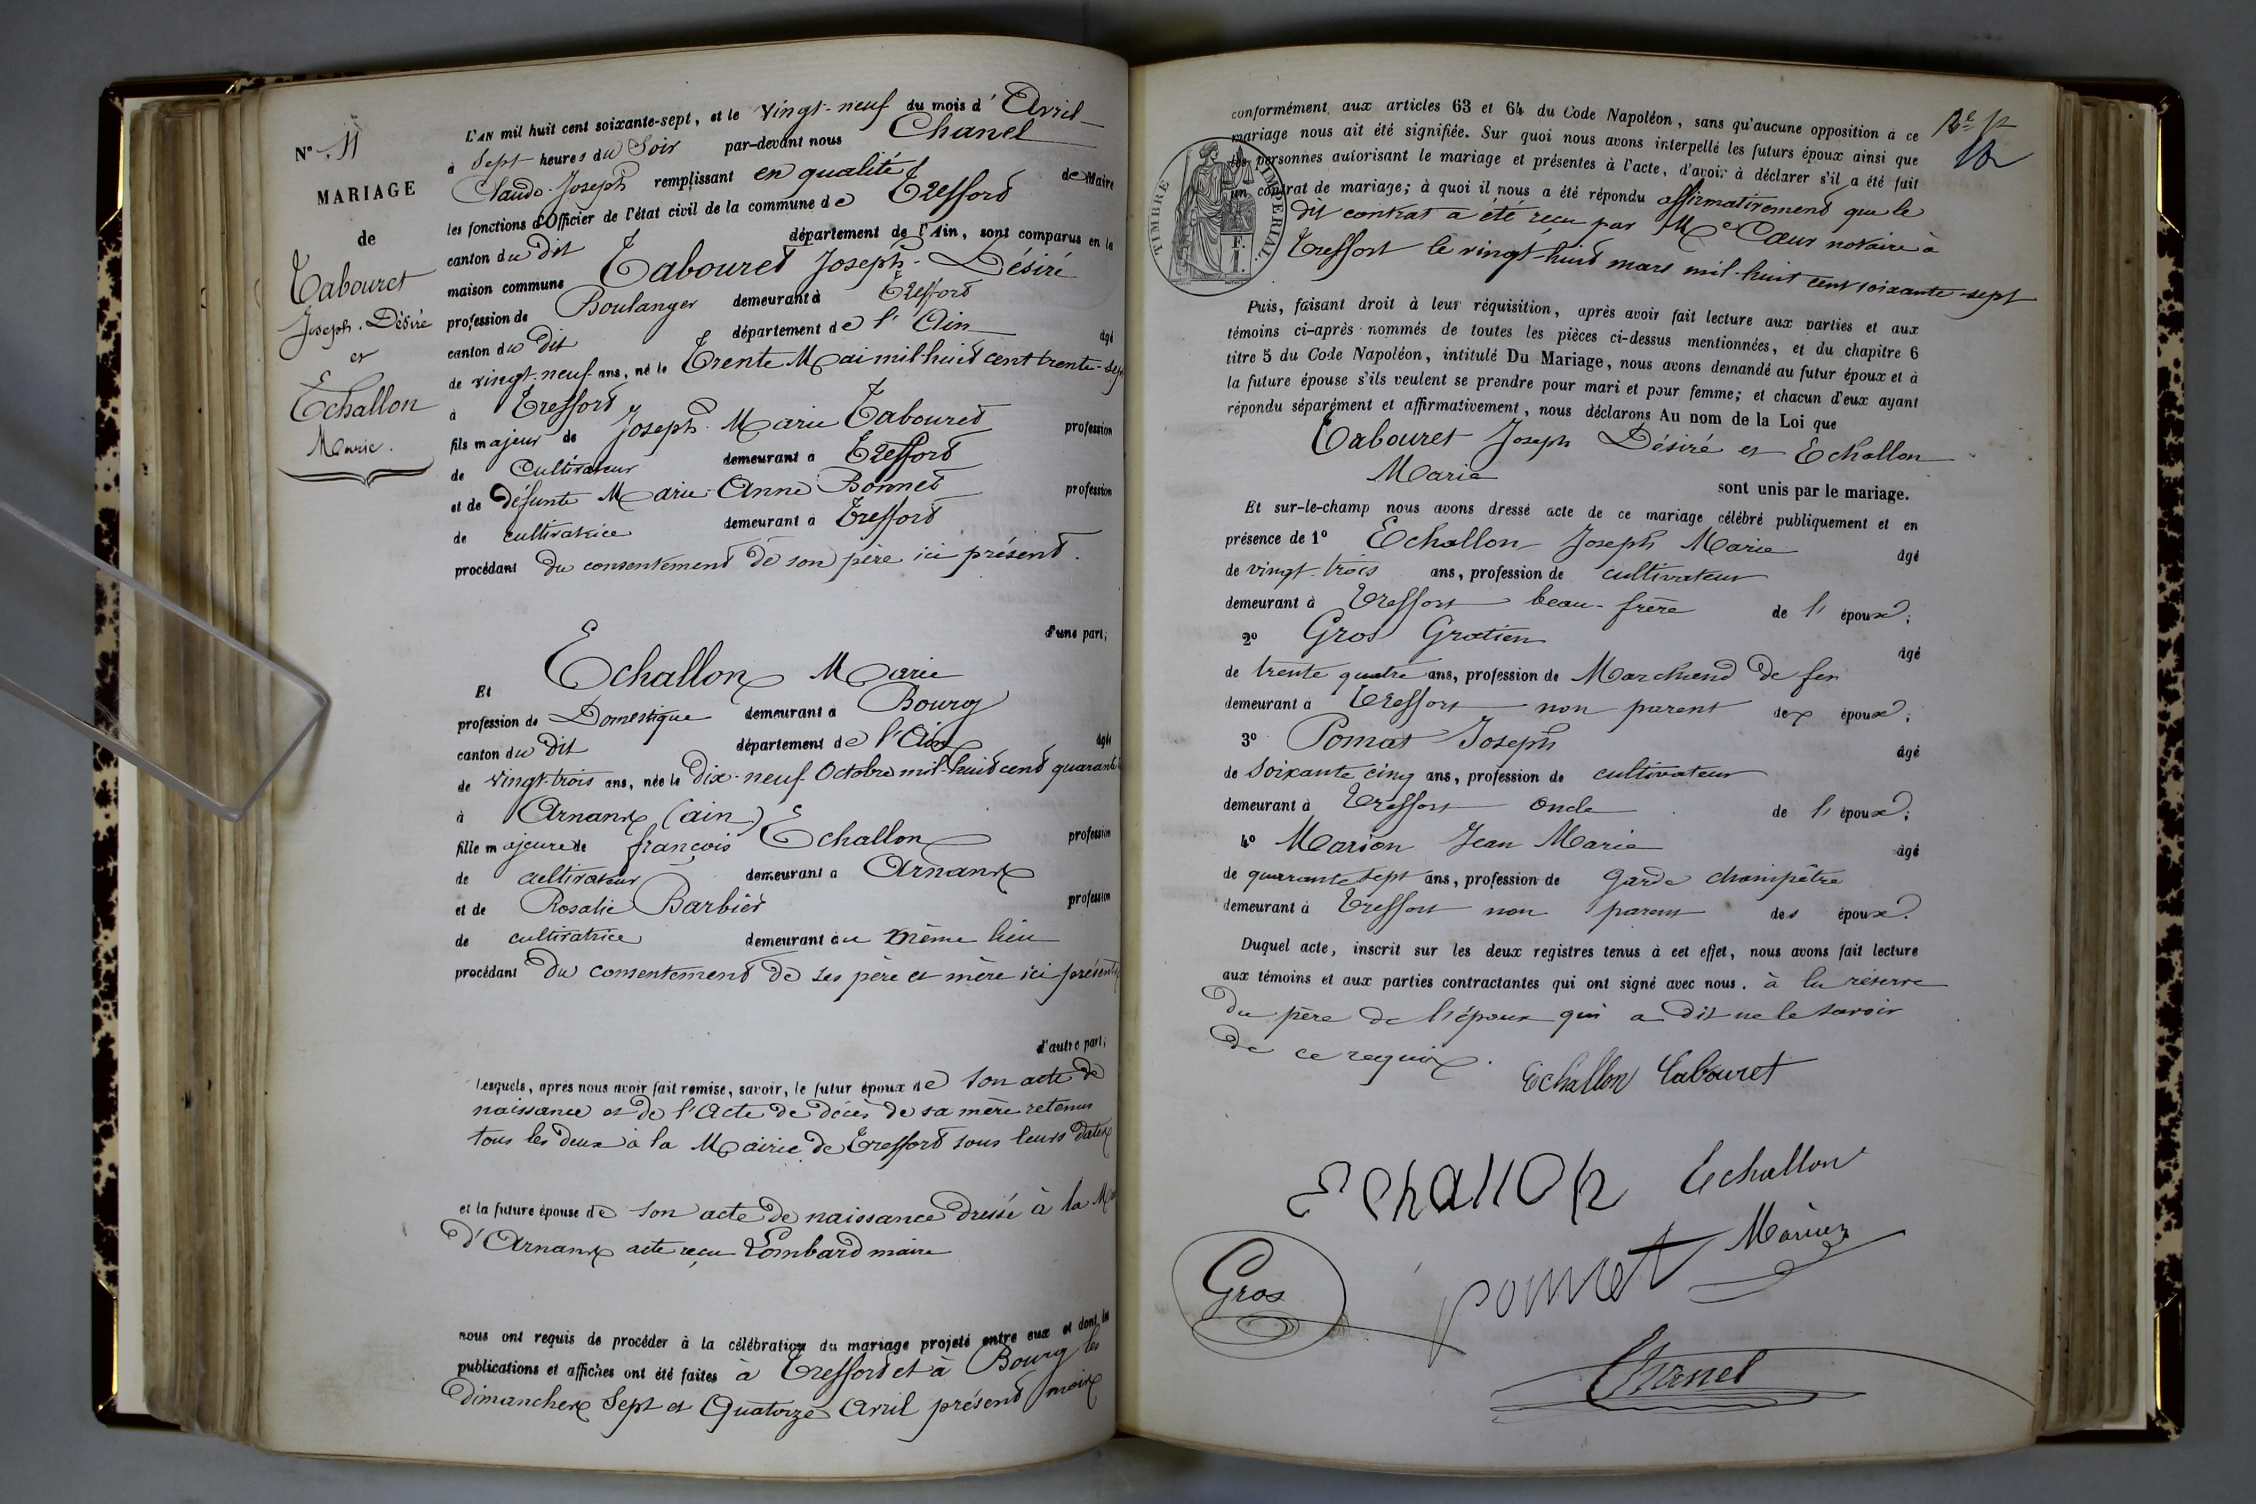 N° 11
MARIAGE
de
Tabouret
Joseph. Désiré
et
Echallon
Marie.
L'AN mil huit cent soixante-sept, et le vingt-neuf du mois d'Avril
à Sept heures du Soir par-devant nous Chanel
Claude-Joseph remplissant en qualité de Maire
les fonctions d'Officier de l'état civil de la commune de Treffort
canton du dit département de l'Ain, sont comparus en la
maison commune Tabouret Joseph-Désiré
profession de Boulanger demeurant à Treffort
canton du dit département de l'Ain âgé
de vingt-neuf ans, né le Trente Mai mil huit cent trente-sept
à Treffort
fils majeur de Joseph-Marie Tabouret profession
de Cultivateur demeurant à Treffort
et de défunte Marie-Anne Bonnet profession
de cultivatrice demeurant à Treffort
procédant du consentement de son père ici présent.
d'une part;
Et Echallon Marie
profession de Domestique demeurant à Bourg
canton du dit département de l'Ain âgée
de vingt-trois ans, née le dix-neuf Octobre mil-huit cent quarante
à Arnans (ain)
fille majeure de françois Echallon profession
de cultivateur demeurant à Arnans
et de Rosalie Barbier profession
de cultivatrice demeurant au même lieu
procédant du consentement de ses père et mère ici présents
d'autre part;
Lesquels, après nous avoir fait remise, savoir, le futur époux de son acte de
naissance et de l'Acte de décès de sa mère retenus
tous les deux à la Mairie de Treffort sous leurs dates
et la future épouse de son acte de naissance dressé à la
d'Arnans acte reçu Lombard maire
nous ont requis de procéder à la célébration du mariage projeté entre eux et dont les
publications et affiches ont été faites à Treffort et à Bourg les
dimanches Sept et Quatorze Avril présent mois
conformément aux articles 63 et 64 du Code Napoléon, sans qu'aucune opposition à ce
mariage nous ait été signifiée. Sur quoi nous avons interpellé les futurs époux ainsi que
les personnes autorisant le mariage et présentes à l'acte, d'avoir à déclarer s'il a été fait
un contrat de mariage; à quoi il nous a été répondu affirmativement que le
dit contrat a été reçu par Me Cœur notaire à
Treffort le vingt-huit mars mil-huit cent soixante-sept
TIMBRE IMPERIAL.
Puis, faisant droit à leur réquisition, après avoir fait lecture aux parties et aux
témoins ci-après nommés de toutes les pièces ci-dessus mentionnées, et du chapitre 6
titre 5 du Code Napoléon, intitulé Du Mariage, nous avons demandé au futur époux et à
la future épouse s'ils veulent se prendre pour mari et pour femme; et chacun d'eux ayant
répondu séparément et affirmativement, nous déclarons Au nom de la Loi que
Tabouret Joseph Désiré et Echallon
Marie
sont unis par le mariage.
Et sur-le-champ nous avons dressé acte de ce mariage célébré publiquement et en
présence de 1° Echallon Joseph Marie âgé
de vingt-trois ans, profession de cultivateur
demeurant à Treffort beau-frère de l'époux;
2° Gros Gratien âgé
de trente quatre ans, profession de Marchand de fer
demeurant à Treffort non parent des époux;
3° Pomat Joseph âgé
de soixante cinq ans, profession de cultivateur
demeurant à Treffort oncle de l'époux;
4° Marion Jean Marie âgé
de quarante sept ans, profession de Garde champêtre
demeurant à Treffort non parent des époux.
Duquel acte, inscrit sur les deux registres tenus à cet effet, nous avons fait lecture
aux témoins et aux parties contractantes qui ont signé avec nous. à la réserve
du père de l'époux qui a dit ne le savoir
de ce requis.
Echallon Tabouret
Echallon Echallon
Gros pomat Marion
Chanel